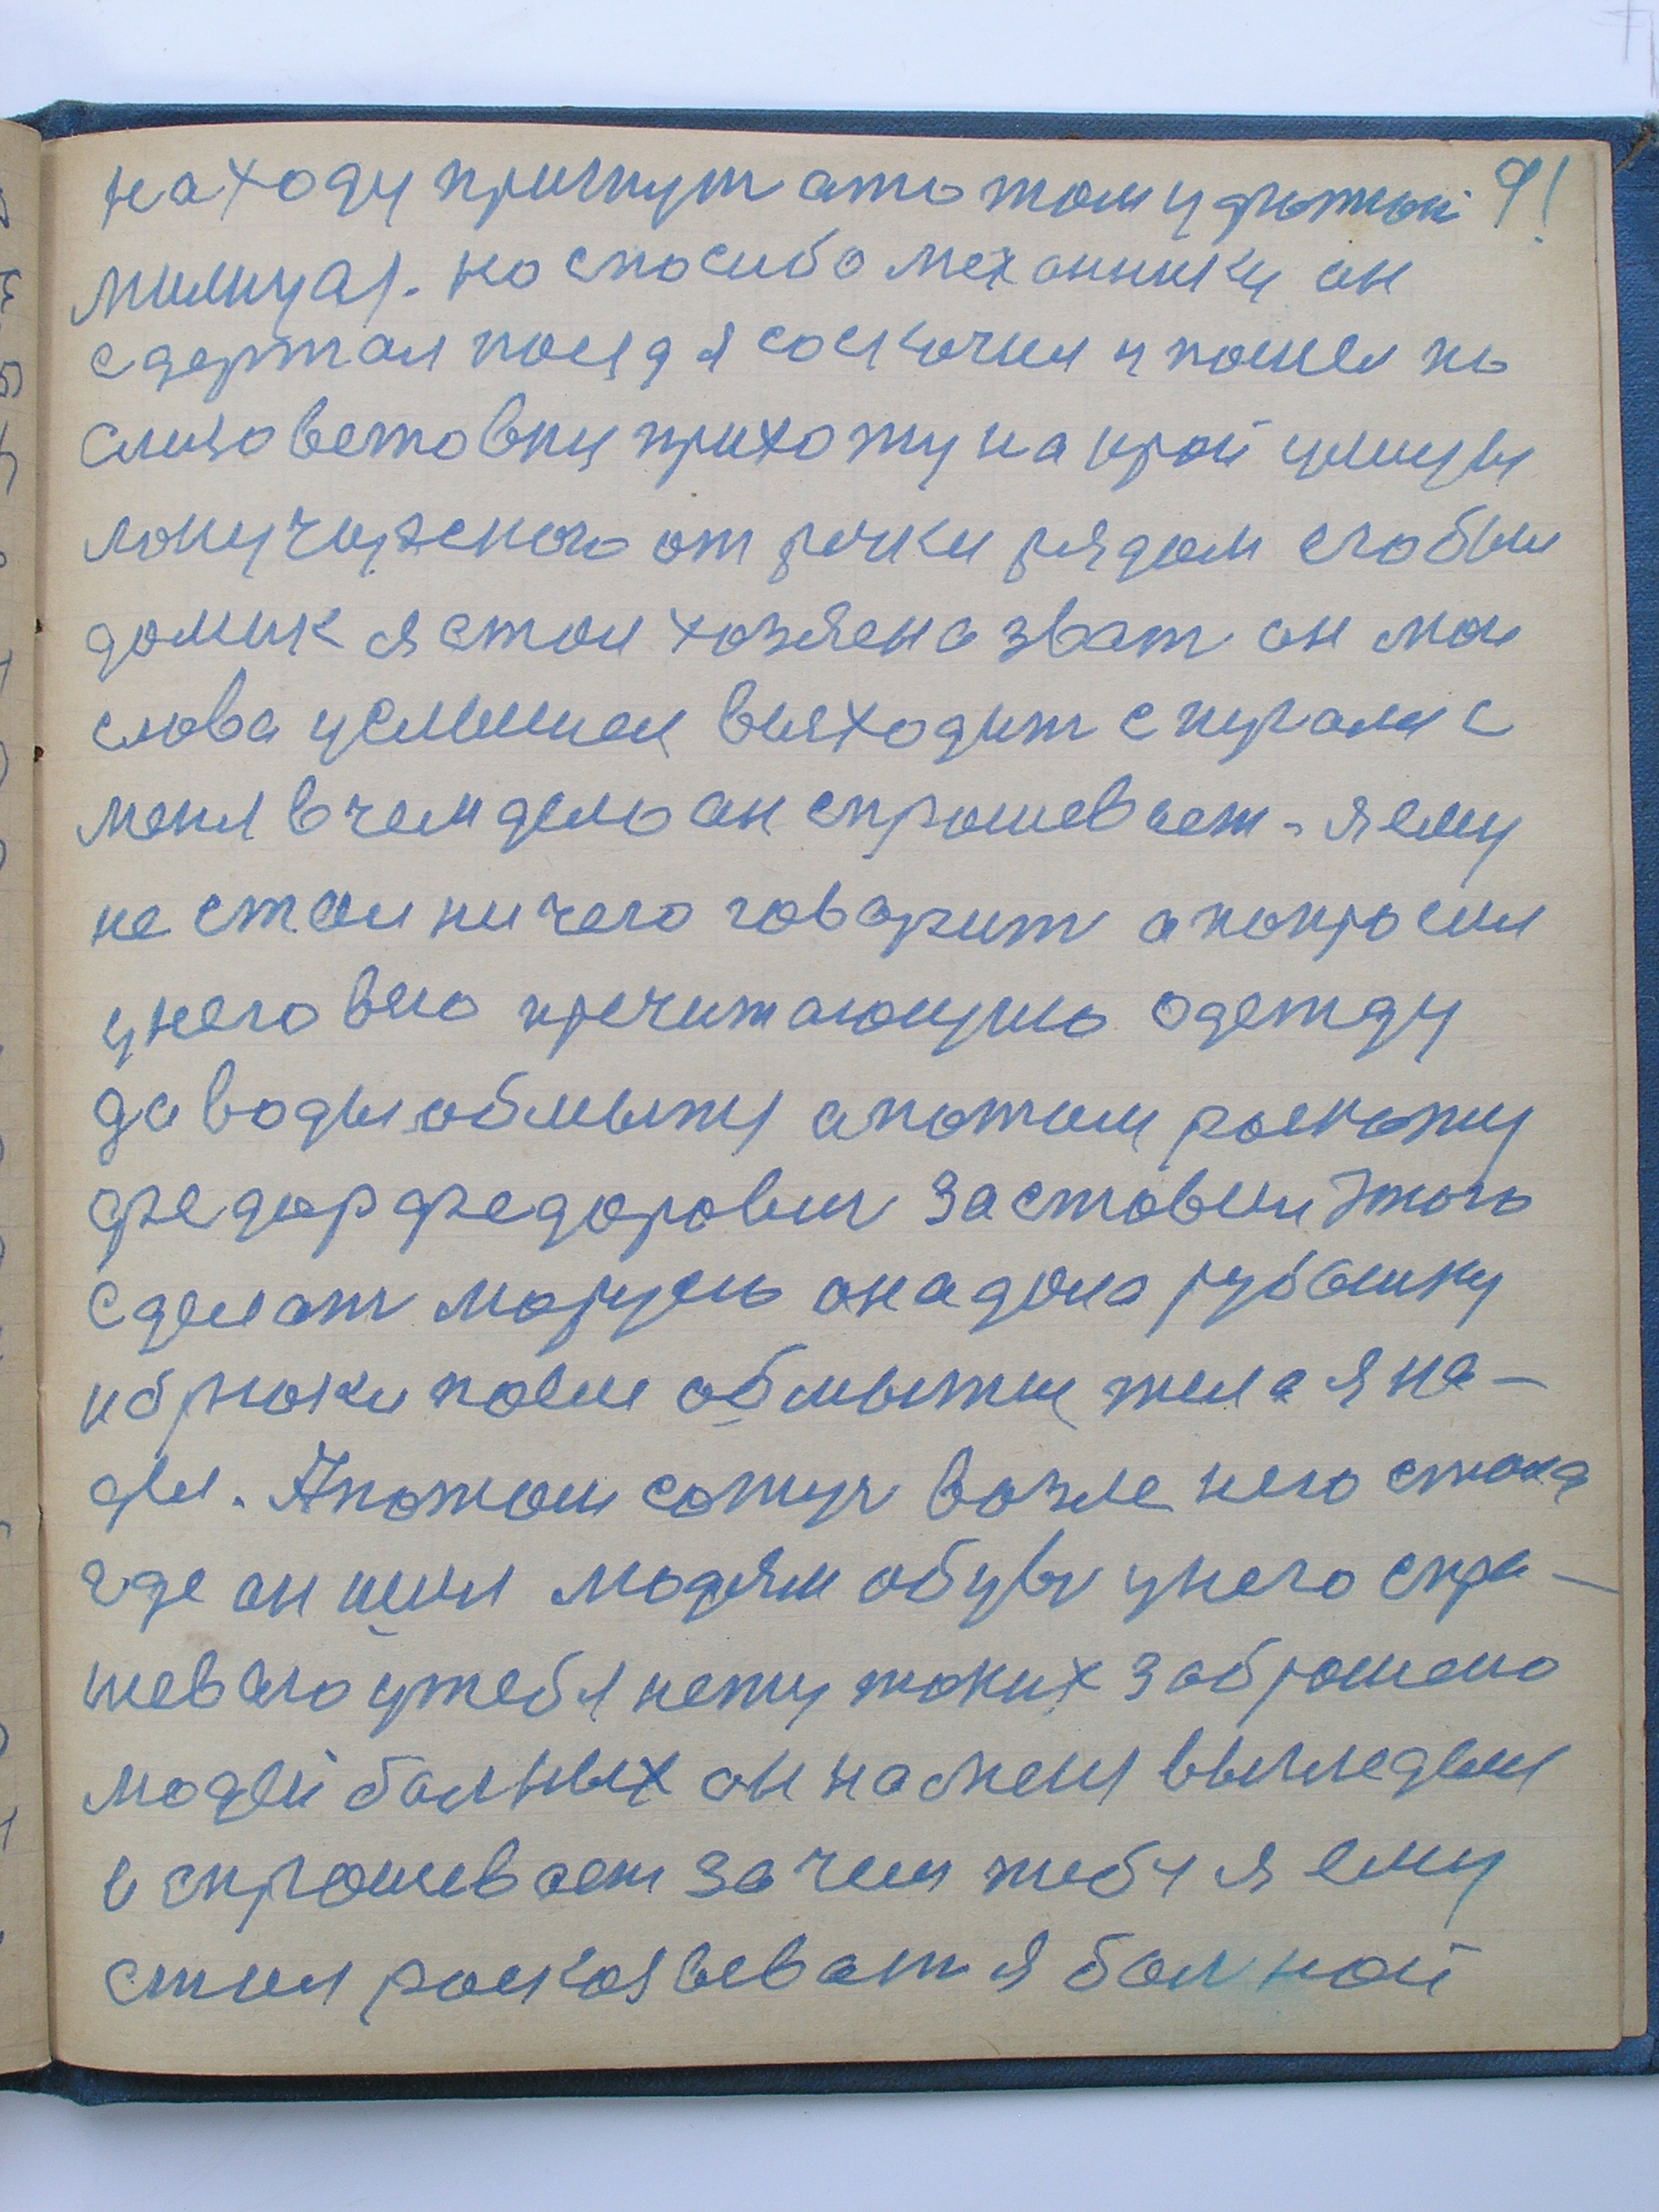 на ходу пригнут ато там удютой 91
милицая. но спосибо механнику он
сдержал поезд я соскочил и пошел по
Елизоветовки прихожу на край улицы
лопучуженого от речки рядом его был
домик я стал хозяена зват он мои
слова услышиал выходит спугалис
меня в чем дело он спрошевает. я ему
не стал ничего говарит а попросил
у него вею пречитающую одежду
да воды обмытя а потом роскожу
федор федорович заставил этого
сделат марусю она дала рубашку
и брюки после обмытия тела я на-
дел. А потом сажус возле него стола
где он шил людям обувь у него спра-
шеваю у тебя нету таких заброшено
людей болных он на меня выглядел
и спрошевает зачем тебе я ему
стал роскозыеват я болной